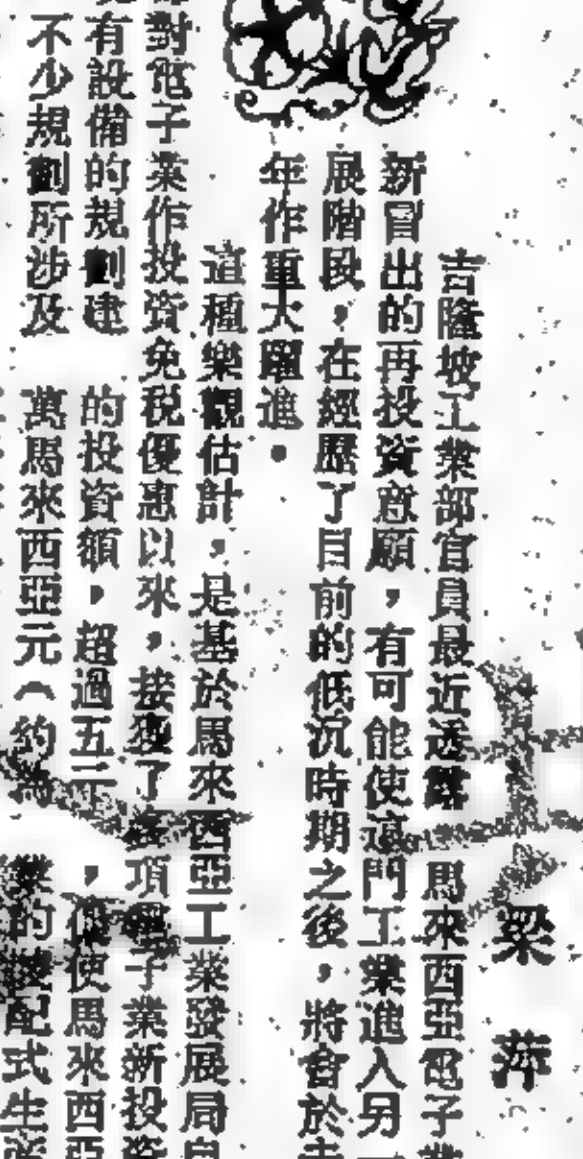 梁萍
吉隆坡工業部官員最近透露 馬來西亞電子業
新冒出的再投資意願，有可能使這門工業進入另一
展階段，在經歷了目前的低沉時期之後，將會於
年作重大躍進。
這種樂觀估計，是基於馬來西亞工業發展局自
對電子業作投資免稅優惠以來，接獲了多項電子業新投資
有設備的規劃建
的投資額，超過五三
，使馬來西亞
不少規劃所涉及
萬馬來西亞元（約
業的裝配式生產